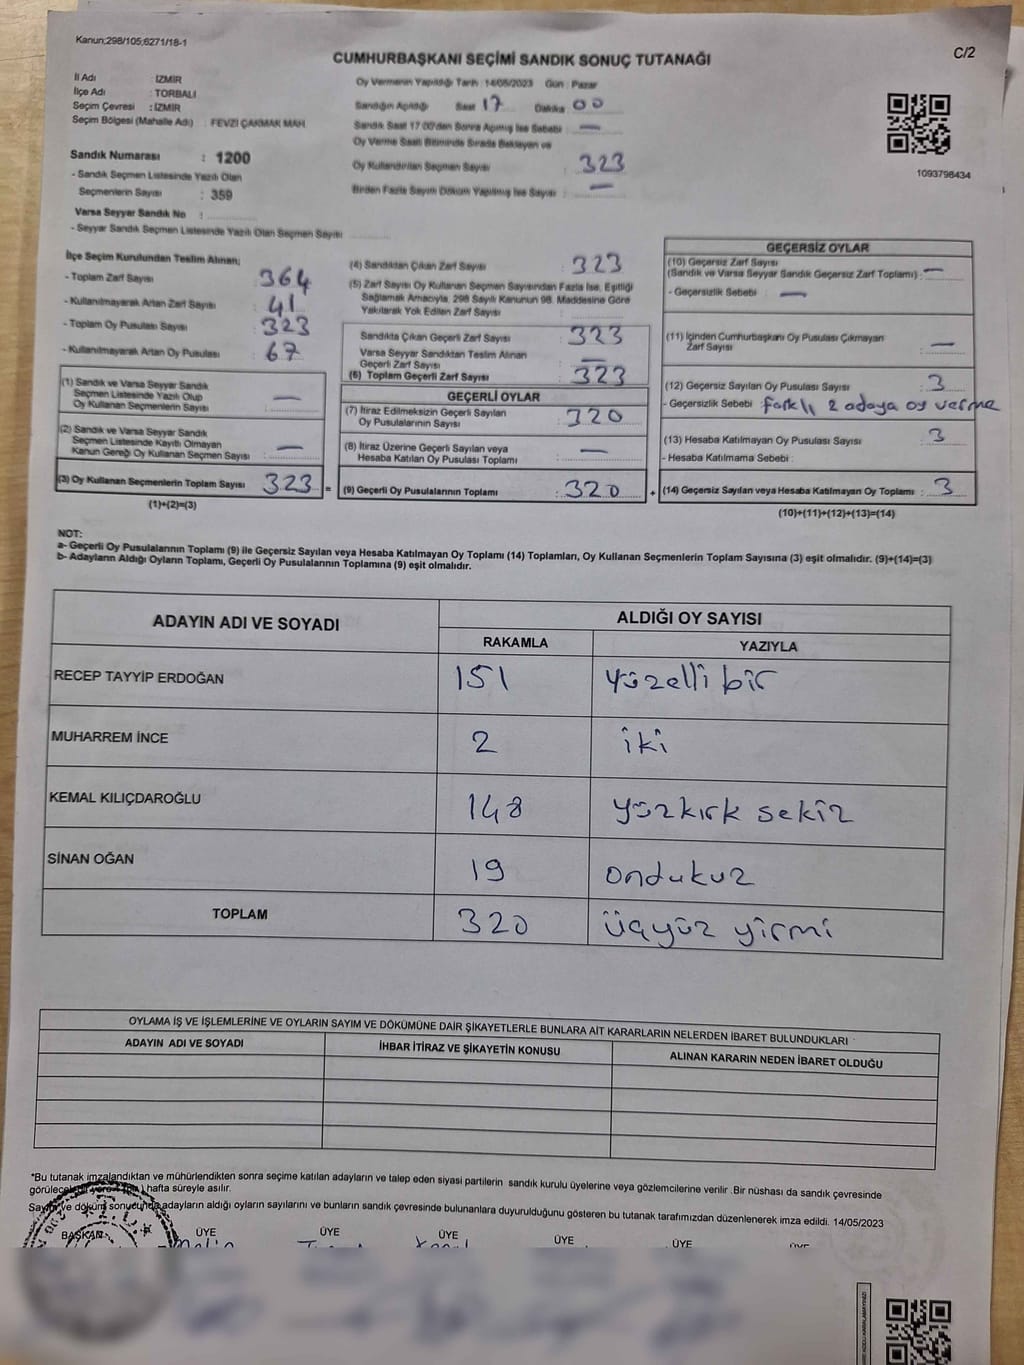 Kanun;298/105;6271/18-1
C/2
CUMHURBAŞKANI SEÇİMİ SANDIK SONUÇ TUTANAĞI
İl Adı : İZMİR
İlçe Adı : TORBALI
Seçim Çevresi : İZMİR
Seçim Bölgesi (Mahalle Adı) : FEVZİ ÇAKMAK MAH.
Sandık Numarası : 1200
- Sandık Seçmen Listesinde Yazılı Olan
Seçmenlerin Sayısı : 359
Varsa Seyyar Sandık No :
- Seyyar Sandık Seçmen Listesinde Yazılı Olan Seçmen Sayısı
Oy Vermenin Yapıldığı Tarih : 14/05/2023 Gün : Pazar
Sandığın Açıldığı Saat 17 Dakika 00
Sandık Saat 17.00'den Sonra Açılmış İse Sebebi : —
Oy Verme Saati Bitiminde Sırada Bekleyen ve
Oy Kullandırılan Seçmen Sayısı : 323
Birden Fazla Sayım Döküm Yapılmış İse Sayısı : —
1093798434
İlçe Seçim Kurulundan Teslim Alınan;
- Toplam Zarf Sayısı : 364
- Kullanılmayarak Artan Zarf Sayısı : 41
- Toplam Oy Pusulası Sayısı : 323
- Kullanılmayarak Artan Oy Pusulası : 67
(1) Sandık ve Varsa Seyyar Sandık
Seçmen Listesinde Yazılı Olup
Oy Kullanan Seçmenlerin Sayısı : —
(2) Sandık ve Varsa Seyyar Sandık
Seçmen Listesinde Kayıtlı Olmayan
Kanun Gereği Oy Kullanan Seçmen Sayısı : —
(3) Oy Kullanan Seçmenlerin Toplam Sayısı : 323 =
(1)+(2)=(3)
(4) Sandıktan Çıkan Zarf Sayısı : 323
(5) Zarf Sayısı Oy Kullanan Seçmen Sayısından Fazla İse, Eşitliği
Sağlamak Amacıyla, 298 Sayılı Kanunun 98. Maddesine Göre
Yakılarak Yok Edilen Zarf Sayısı :
Sandıkta Çıkan Geçerli Zarf Sayısı : 323
Varsa Seyyar Sandıktan Teslim Alınan
Geçerli Zarf Sayısı : —
(6) Toplam Geçerli Zarf Sayısı : 323
GEÇERLİ OYLAR
(7) İtiraz Edilmeksizin Geçerli Sayılan
Oy Pusulalarının Sayısı : 320
(8) İtiraz Üzerine Geçerli Sayılan veya
Hesaba Katılan Oy Pusulası Toplamı : —
(9) Geçerli Oy Pusulalarının Toplamı : 320 +
GEÇERSİZ OYLAR
(10) Geçersiz Zarf Sayısı
(Sandık ve Varsa Seyyar Sandık Geçersiz Zarf Toplamı) : —
- Geçersizlik Sebebi : —
(11) İçinden Cumhurbaşkanı Oy Pusulası Çıkmayan
Zarf Sayısı : —
(12) Geçersiz Sayılan Oy Pusulası Sayısı : 3
- Geçersizlik Sebebi : farklı 2 adaya oy verme
(13) Hesaba Katılmayan Oy Pusulası Sayısı : 3
- Hesaba Katılmama Sebebi :
(14) Geçersiz Sayılan veya Hesaba Katılmayan Oy Toplamı : 3
(10)+(11)+(12)+(13)=(14)
NOT:
a- Geçerli Oy Pusulalarının Toplamı (9) ile Geçersiz Sayılan veya Hesaba Katılmayan Oy Toplamı (14) Toplamları, Oy Kullanan Seçmenlerin Toplam Sayısına (3) eşit olmalıdır. (9)+(14)=(3)
b- Adayların Aldığı Oyların Toplamı, Geçerli Oy Pusulalarının Toplamına (9) eşit olmalıdır.
ADAYIN ADI VE SOYADI ALDIĞI OY SAYISI
RAKAMLA YAZIYLA
RECEP TAYYİP ERDOĞAN 151 yüzelli bir
MUHARREM İNCE 2 iki
KEMAL KILIÇDAROĞLU 148 yüzkırk sekiz
SİNAN OĞAN 19 ondukuz
TOPLAM 320 üçyüz yirmi
OYLAMA İŞ VE İŞLEMLERİNE VE OYLARIN SAYIM VE DÖKÜMÜNE DAİR ŞİKAYETLERLE BUNLARA AİT KARARLARIN NELERDEN İBARET BULUNDUKLARI
ADAYIN ADI VE SOYADI İHBAR İTİRAZ VE ŞİKAYETİN KONUSU ALINAN KARARIN NEDEN İBARET OLDUĞU
*Bu tutanak imzalandıktan ve mühürlendikten sonra seçime katılan adayların ve talep eden siyasi partilerin sandık kurulu üyelerine veya gözlemcilerine verilir .Bir nüshası da sandık çevresinde
hafta süreyle asılır.
ve döküm sonucunda adayların aldığı oyların sayılarını ve bunların sandık çevresinde bulunanlara duyurulduğunu gösteren bu tutanak tarafımızdan düzenlenerek imza edildi. 14/05/2023
BAŞKAN ÜYE ÜYE ÜYE ÜYE ÜYE